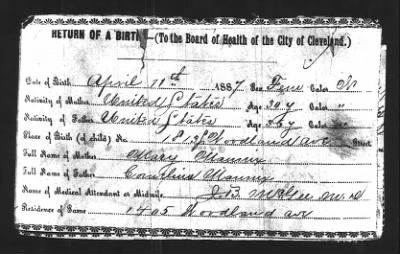 RETURN OF A BIRTH—(To the Board of Health of the City of Cleveland.)
Date of Birth, April 11th 1887 Sex Fem Color W
Nativity of Mother, United States Age, 30 y Color "
Nativity of Father, United States Age, y Color
Place of Birth (of child) No. Woodland ave Street
Full Name of Mother Mary
Full Name of Father Cornelius
Name of Medical Attendant or Midwife, J. B. McGee M.D
Residence of Same 1405 Woodland ave